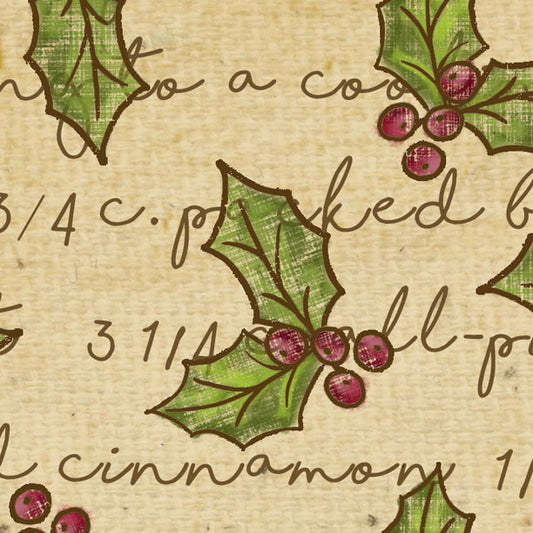 to a
3/4 c. packed
3 1/4 all-p
cinnamon 1/